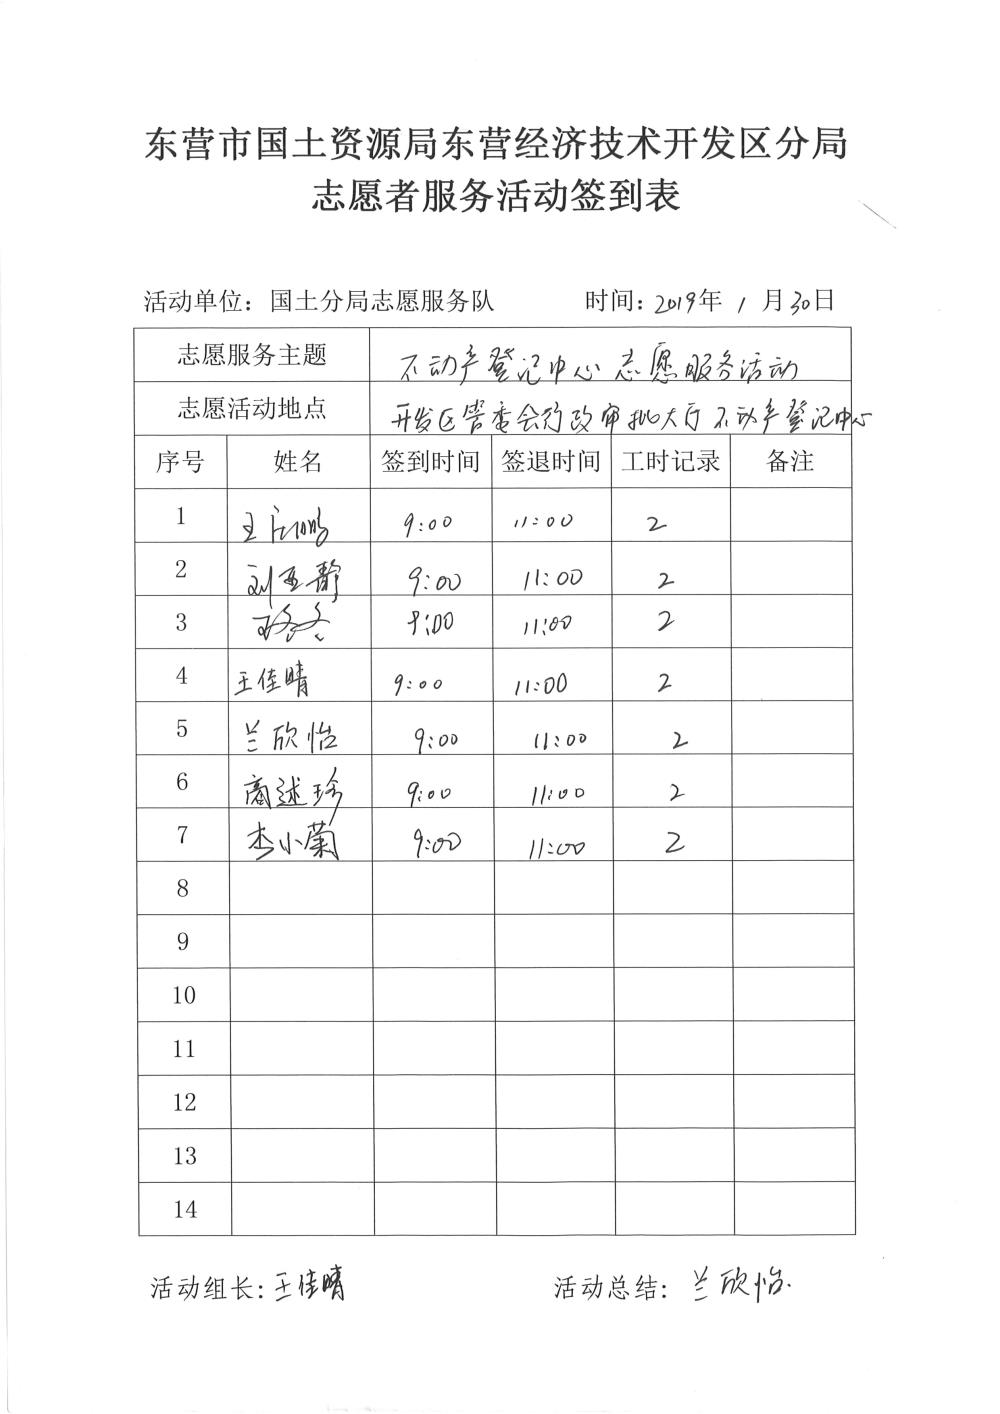 东营市国土资源局东营经济技术开发区分局
志愿者服务活动签到表
活动单位：国土分局志愿服务队 时间：2019年 1 月30日
志愿服务主题 不动产登记中心志愿服务活动
志愿活动地点 开发区管委会行政审批大厅不动产登记中心
序号 姓名 签到时间 签退时间 工时记录 备注
1 王 鹏 9:00 11:00 2
2 刘亚静 9:00 11:00 2
3 9:00 11:00 2
4 王佳晴 9:00 11:00 2
5 兰欣怡 9:00 11:00 2
6 商述珍 9:00 11:00 2
7 李小菊 9:00 11:00 2
8
9
10
11
12
13
14
活动组长：王佳晴 活动总结：兰欣怡.